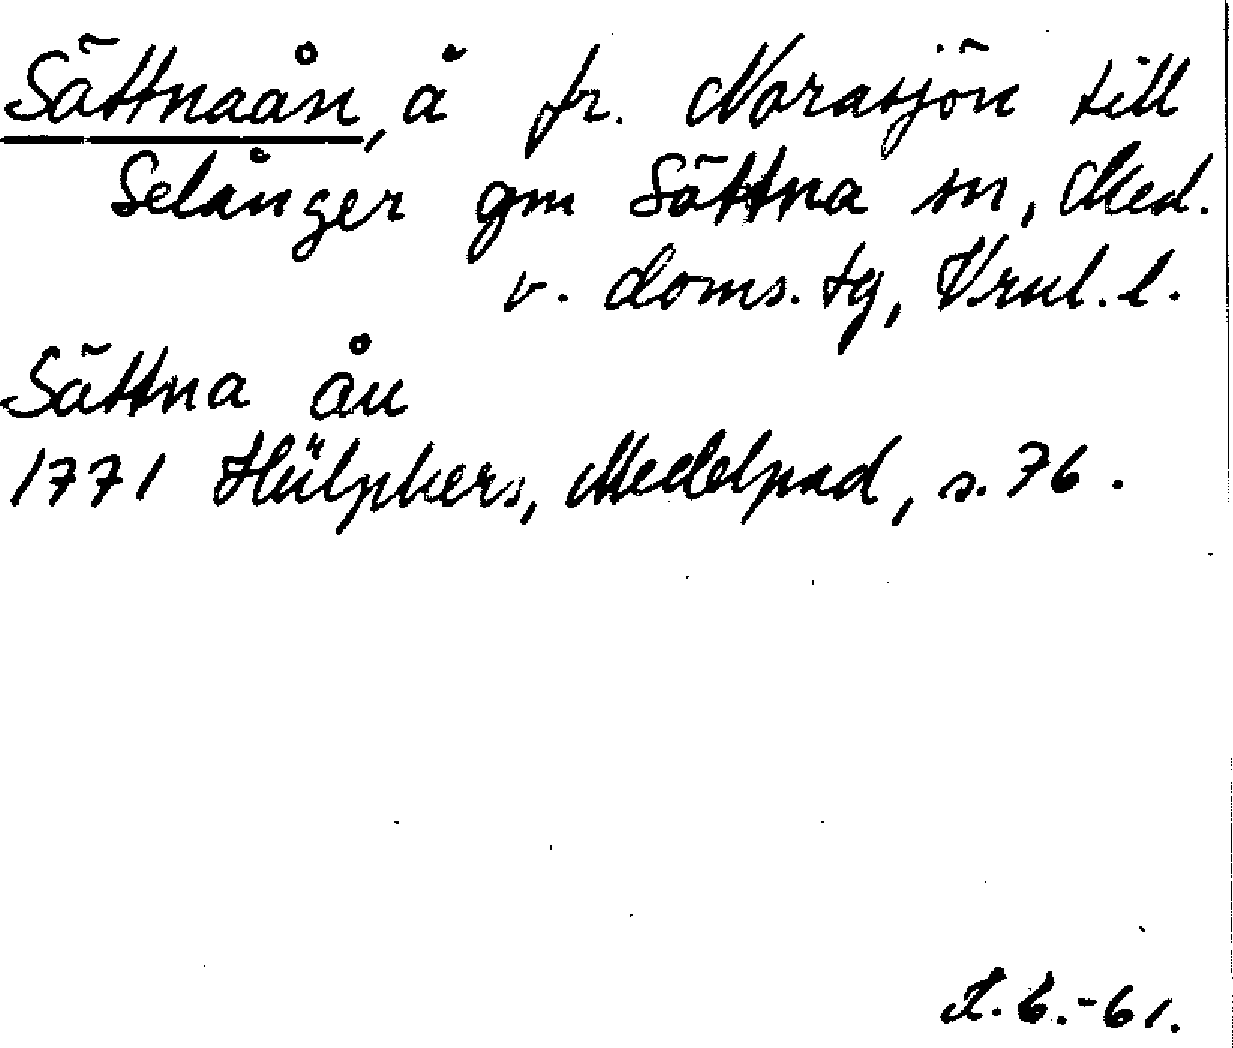 Sättnaån, å fr. Norasjön till
Selånger gm Sättna sn, Med.
v. doms. tg, Vrnl. l.
Sättna ån
1771 Hülphers, Medelpad, s. 76.
L.B.-61.